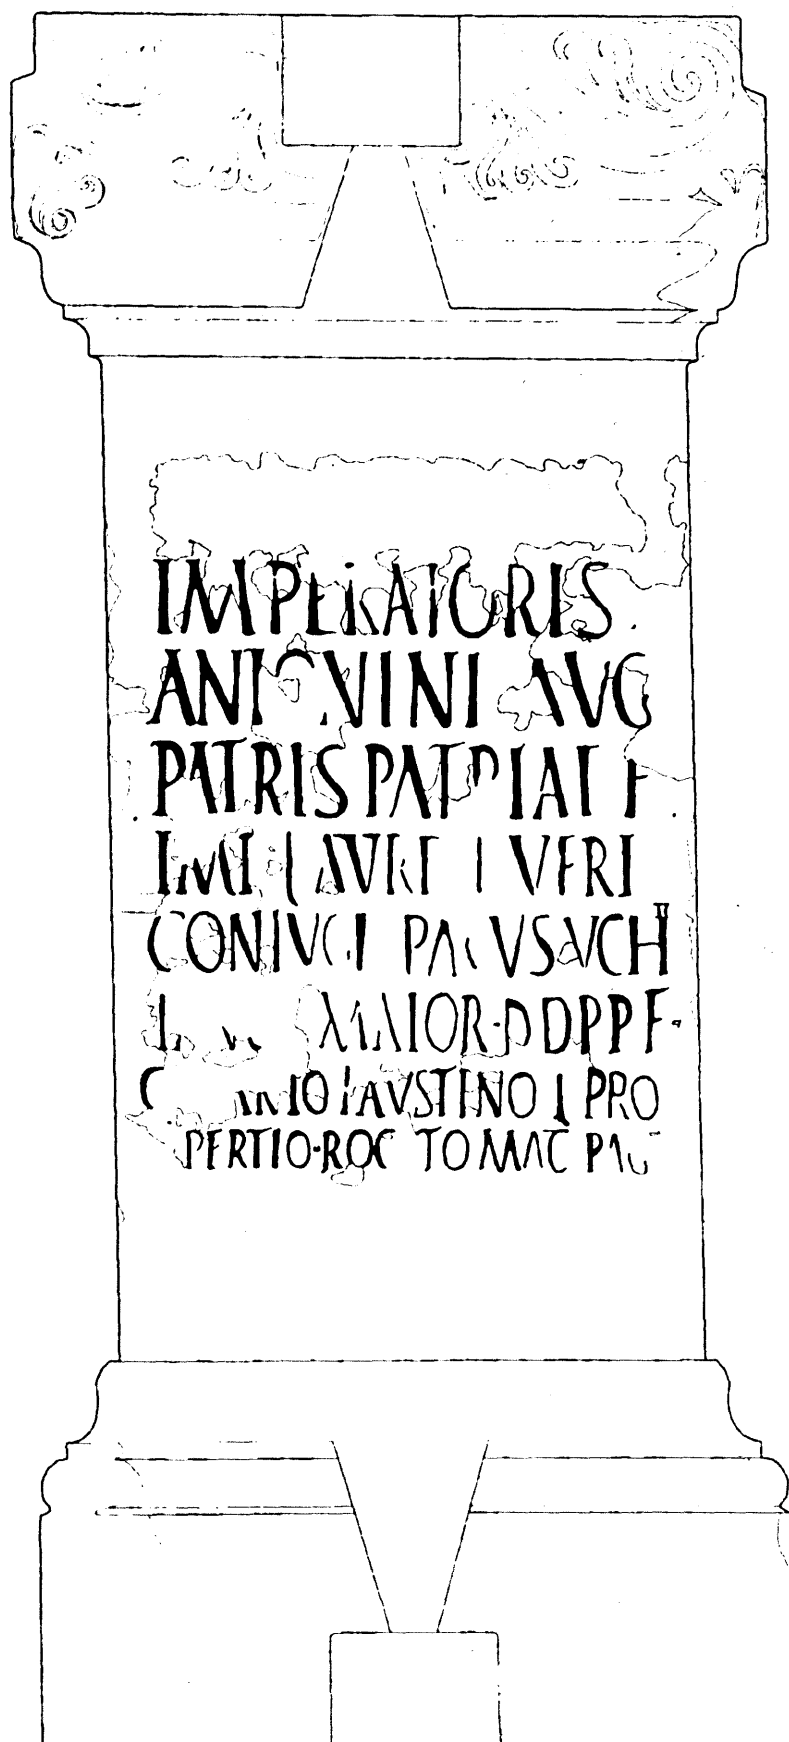 IMPERATORIS
ANTONINI AVG
PATRIS PATRIAE F
IMP L AVREL VERI
CONIVGI PAGVS AVCH
MAIOR·D D P P F·
FAVSTINO PRO
PERTIO·ROG TO MAG PAG